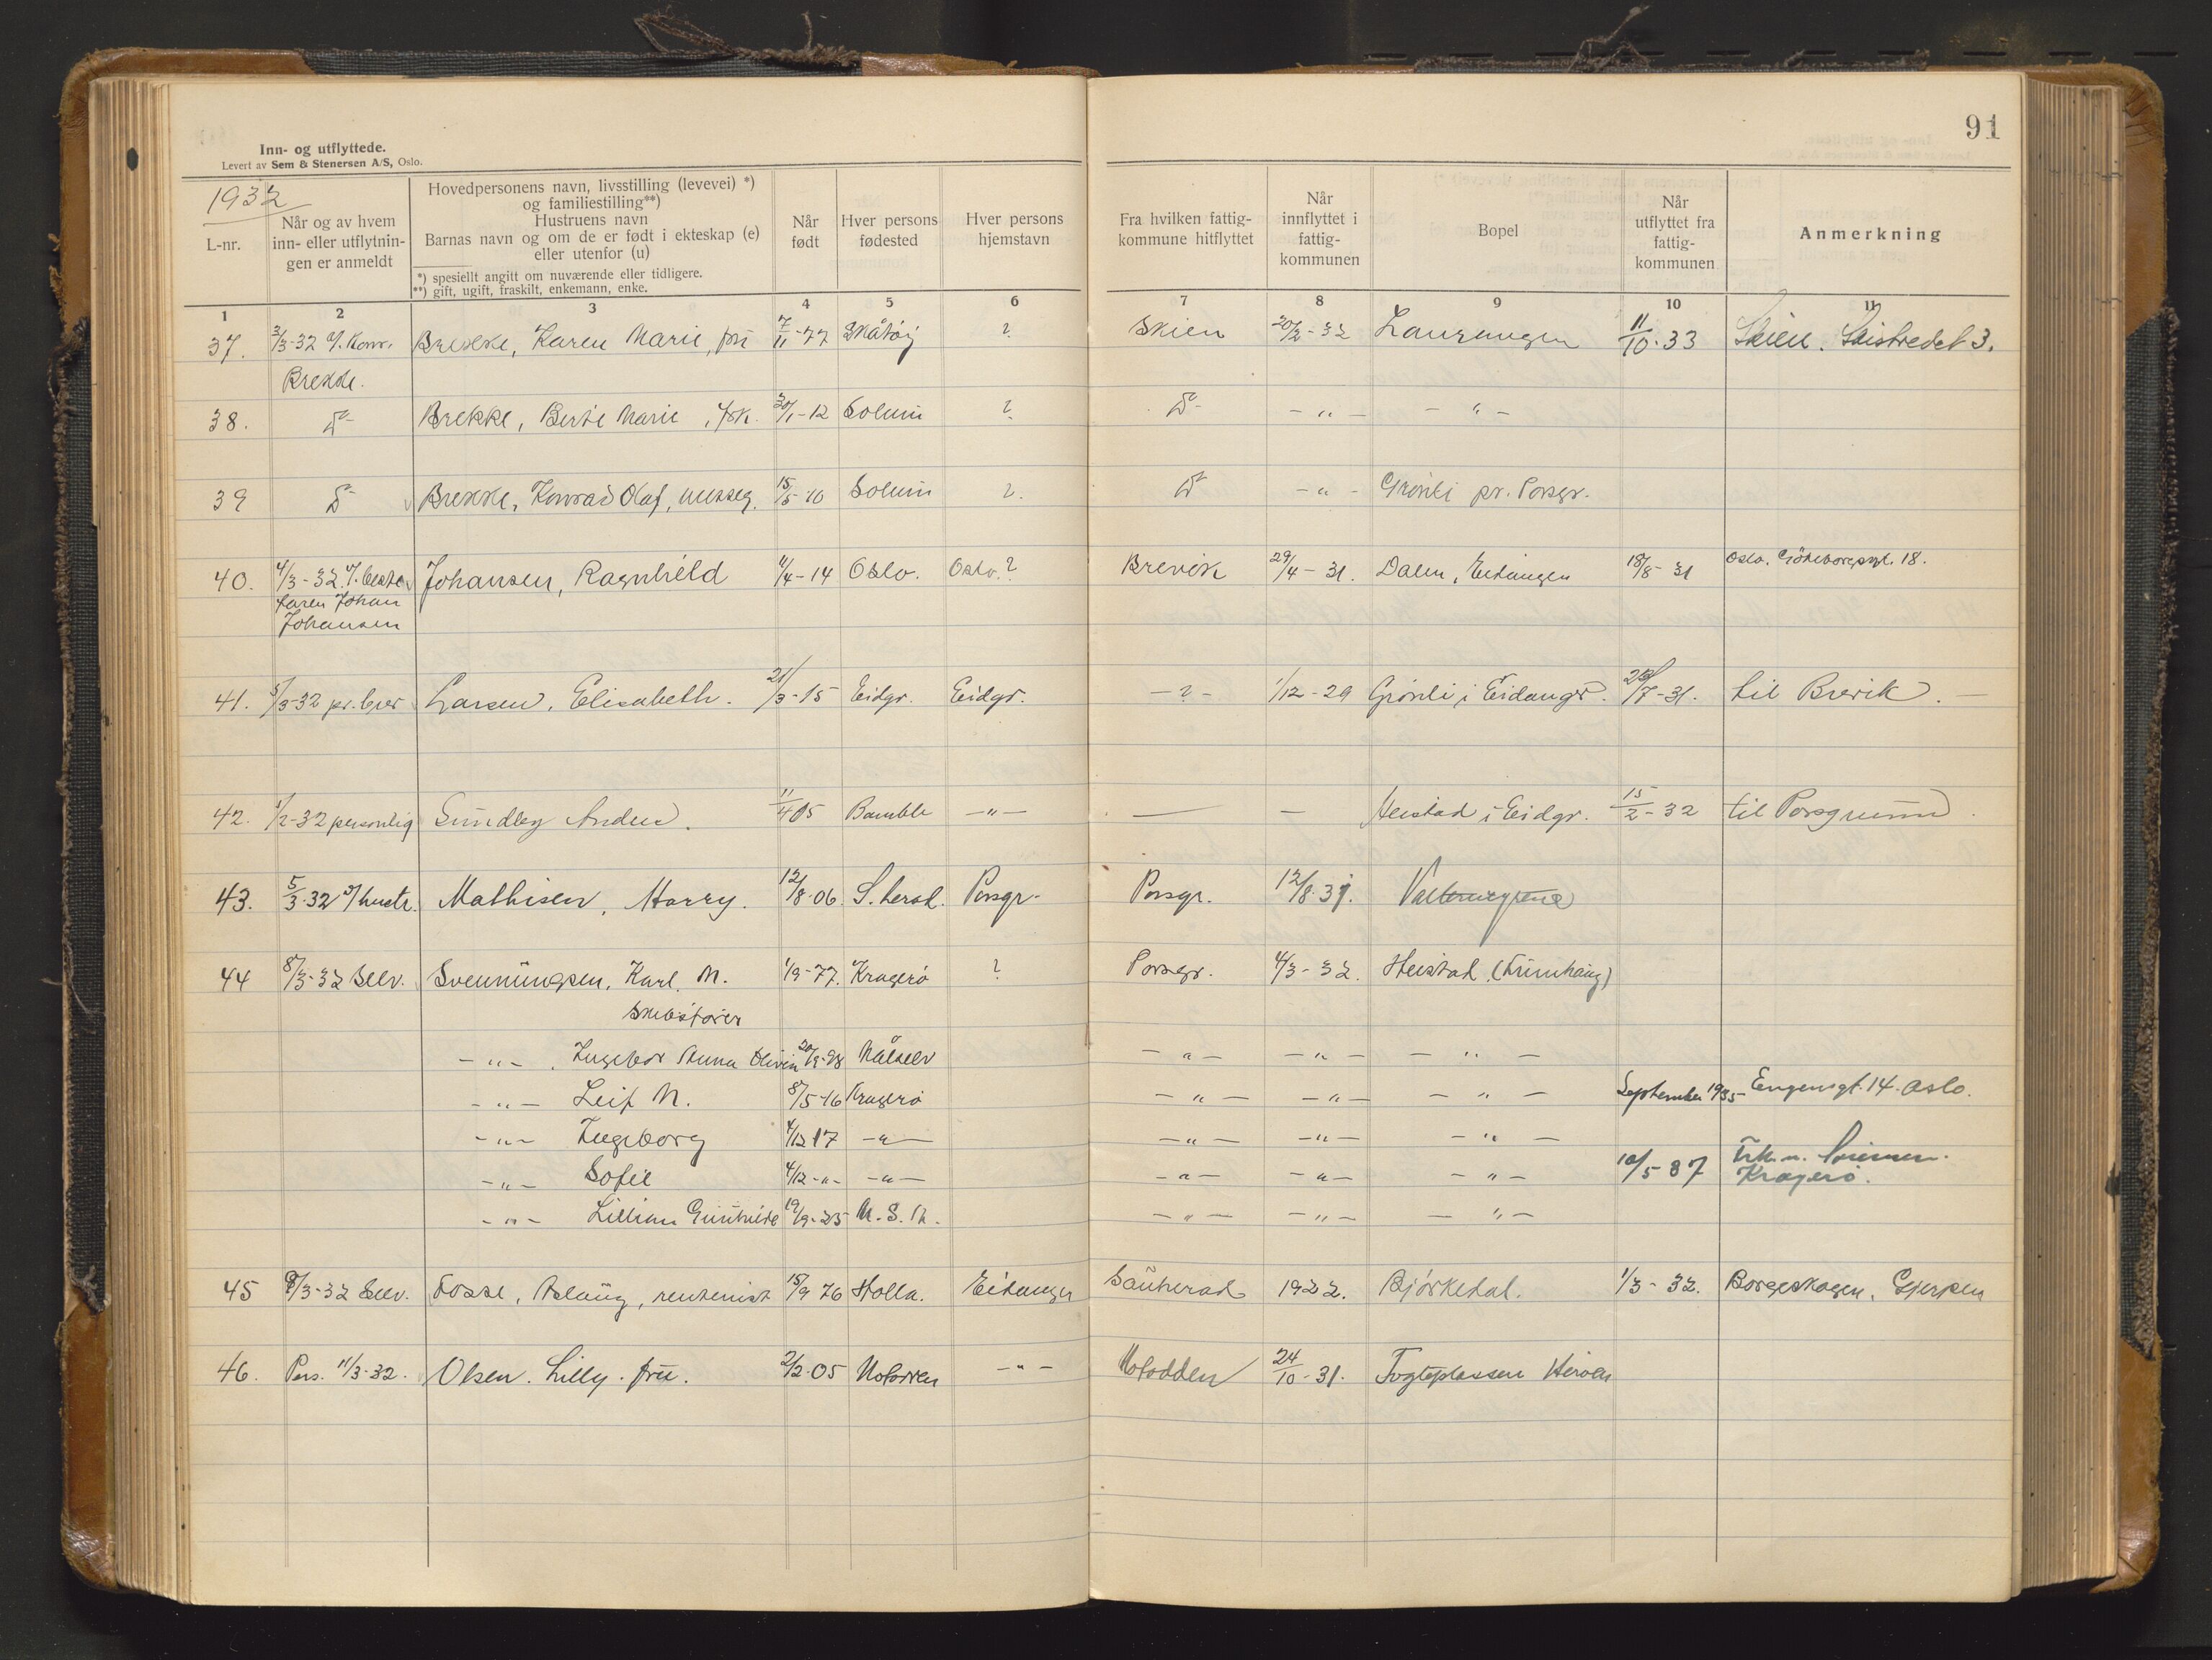 91
Inn- og utflyttede.
Levert av Sem & Stenersen A/S, Oslo.
1932
L-nr.
Når og av hvem inn- eller utflytnin-gen er anmeldt
Hovedpersonens navn, livsstilling (levevei) *)
og familiestilling**)
Hustruens navn
Barnas navn og om de er født i ekteskap (e)
eller utenfor (u)
*) spesiellt angitt om nuværende eller tidligere.
**) gift, ugift, fraskilt, enkemann, enke.
Når født
Hver persons fødested
Hver persons hjemstavn
Fra hvilken fattig-kommune hitflyttet
Når innflyttet i fattig-kommunen
Bopel
Når utflyttet fra fattig-kommunen
Anmerkning
1 2 3 4 5 6 7 8 9 10 11
37. 3/3-32 Brekke, Karen Marie, fru 7/11-77 Skåtøy ? Skien 20/2-32 11/10-33 Skien. 3.
Brekke.
38. Brekke, Marie, frk. 30/1-12 Solum ? -"- -"-
39 Brekke, Konrad Olaf, 15/5-10 Solum ? -"- Grønli pr. Porsgr.
40. 4/3-32 Johansen, Ragnhild 11/4-14 Oslo. Oslo? Brevik 29/4-31. Dalen, Eidanger 18/8-31 Oslo. 18.
faren Johan
Johansen
41. 5/3-32 pr. brev Larsen, Elisabeth. 21/3-15 Eidgr. Eidgr. -?- 1/12-29 Grønli i Eidanger. /7-31. til Brevik.
42. 1/2-32 personlig Sundby Anders. 11/4 05 Bamble -"- — — Heistad i Eidgr. 15/2-32 til Porsgrunn.
43. 5/3-32 Mathisen, Harry. 12/8-06. Porsgr. Porsgr. 12/8-31.
44 8/3-32 Selv. Svenningsen, Karl M. 1/9-77. Kragerø ? Porsgr. 4/3-32. Heistad
Skibsfører
-"- Anna 20/9-98 Målselv -"- -"- -"-
-"- Leif M. 8/5-16 Kragerø -"- -"- -"- September 1935 14. Oslo.
-"- Ingeborg 4/12 17 -"- -"- -"- -"-
-"- Sofie 4/12-"- -"- -"- -"- -"- 10/5-37 Kragerø.
-"- Lillian Gunhild 19/9-25 -"- -"- -"-
45 8/3-32 Selv. Fosse, Aslaug, rentenist 15/9 76 Holla. Eidanger Sauherad 1922. Bjørkedal. 1/3-32. Borgeskogen, Gjerpen
46. Pers. 11/3-32. Olsen. Lilly. fru. 2/2-05 Notodden -"- Notodden 24/10-31.